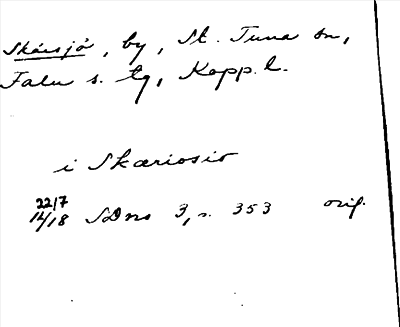 Skärsjö, by, St. Tuna sn,
Falu s. tg, Kopp. l.
i Skæriosio
22/7
14/18 SDns 3, s. 353 orig.